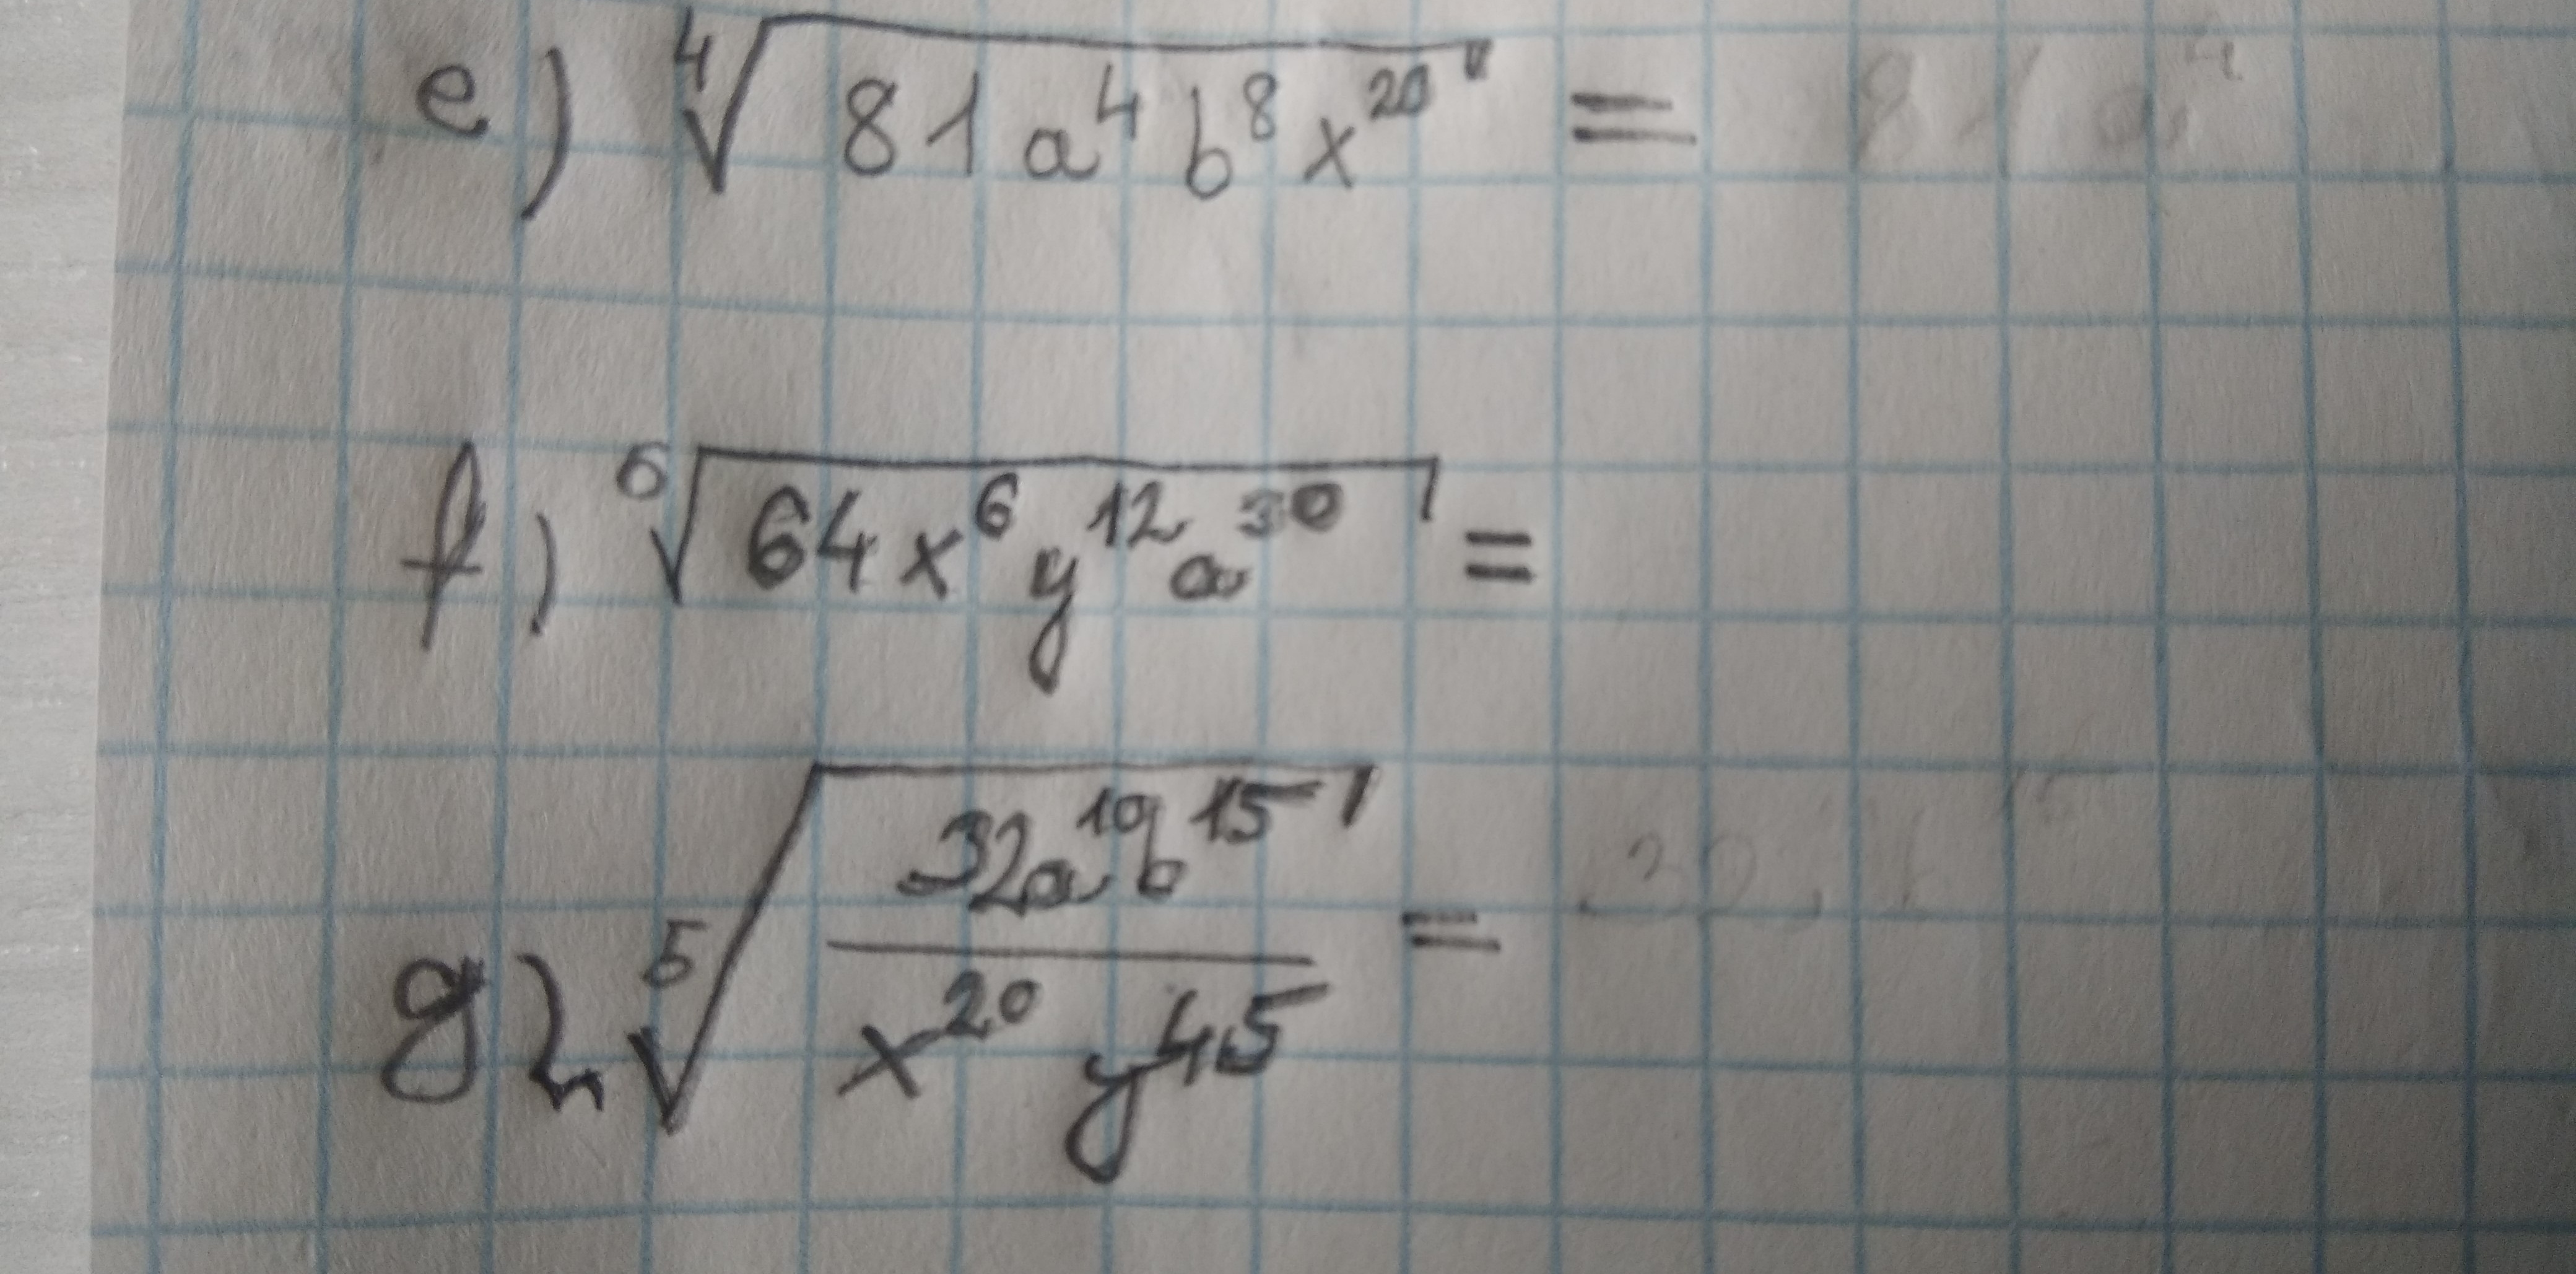 e) ⁴√81a⁴b⁸x²⁰ =
f) ⁶√64x⁶y¹²a³⁰ =
g) ⁵√(32a¹⁰b¹⁵ / x²⁰y⁴⁵) =